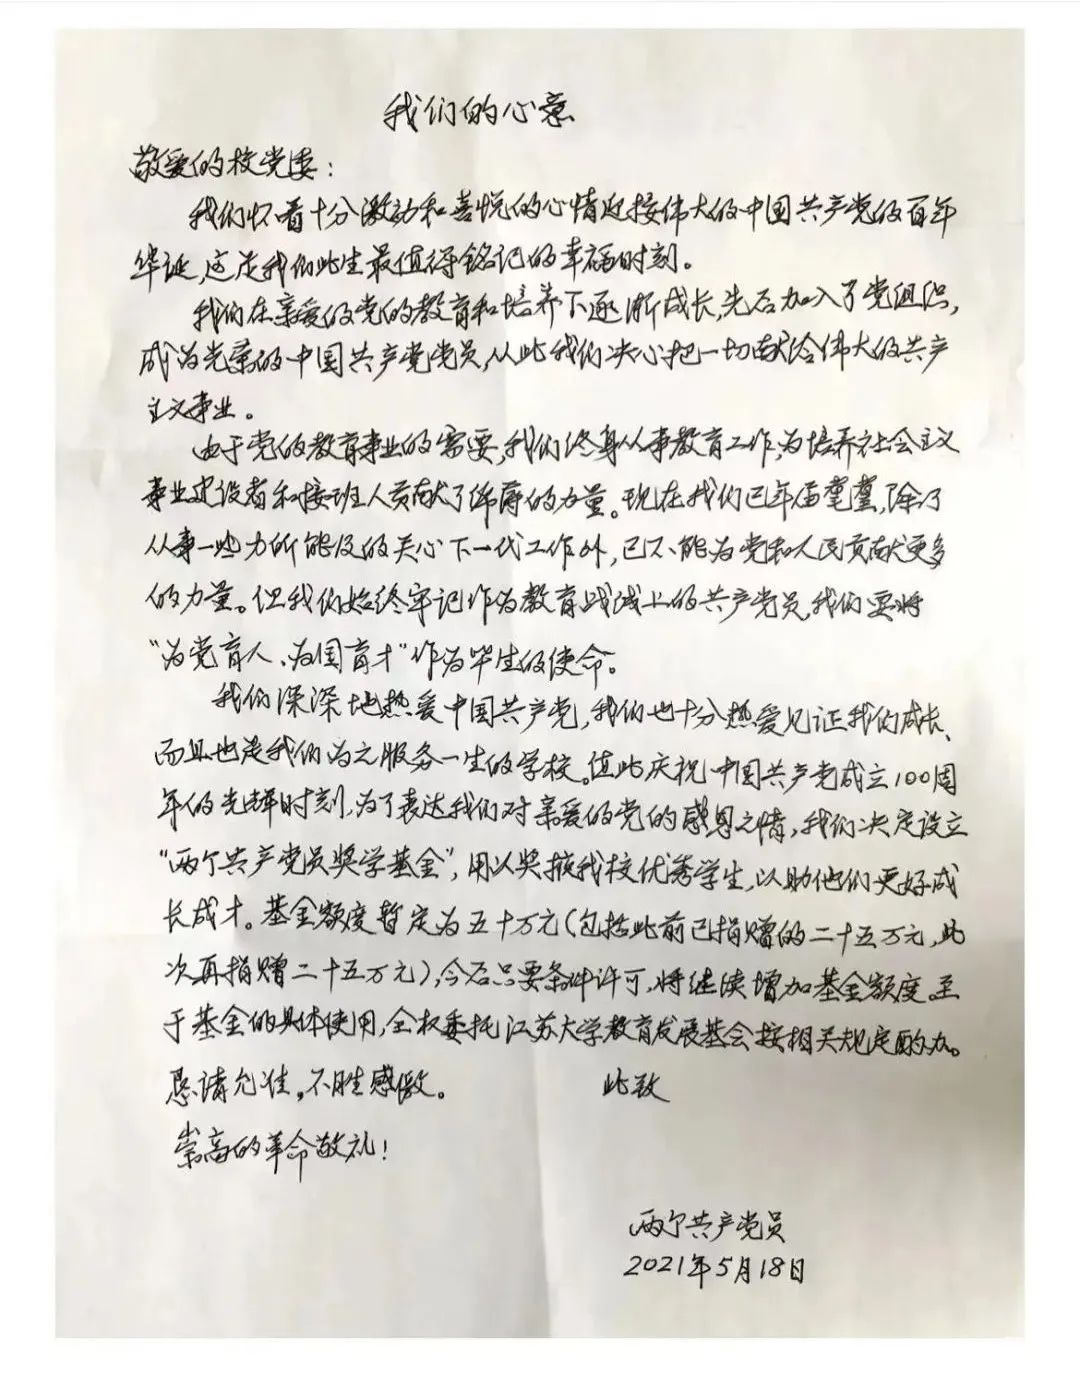 我们的心意
敬爱的校党委：
我们怀着十分激动和喜悦的心情迎接伟大的中国共产党的百年
华诞，这是我们此生最值得铭记的幸福时刻。
我们在亲爱的党的教育和培养下逐渐成长，先后加入了党组织，
成为光荣的中国共产党党员，从此我们决心把一切献给伟大的共产
主义事业。
由于党的教育事业的需要，我们终身从事教育工作，为培养社会主义
事业建设者和接班人贡献了绵薄的力量。现在我们已年届耄耋，除了
从事一些力所能及的关心下一代工作外，已不能为党和人民贡献更多
的力量。但我们始终牢记作为教育战线上的共产党员，我们要将
“为党育人、为国育才”作为毕生的使命。
我们深深地热爱中国共产党，我们也十分热爱见证我们成长、
而且也是我们为之服务一生的学校。值此庆祝中国共产党成立100周
年的光辉时刻，为了表达我们对亲爱的党的感恩之情，我们决定设立
“两个共产党员奖学基金”，用以奖掖我校优秀学生，以助他们更好成
长成才。基金额度暂定为五十万元（包括此前已捐赠的二十五万元，此
次再捐赠二十五万元），今后只要条件许可，将继续增加基金额度。至
于基金的具体使用，全权委托江苏大学教育发展基会按相关规定酌办。
恳请允准，不胜感激。 此致
崇高的革命敬礼！
两个共产党员
2021年5月18日